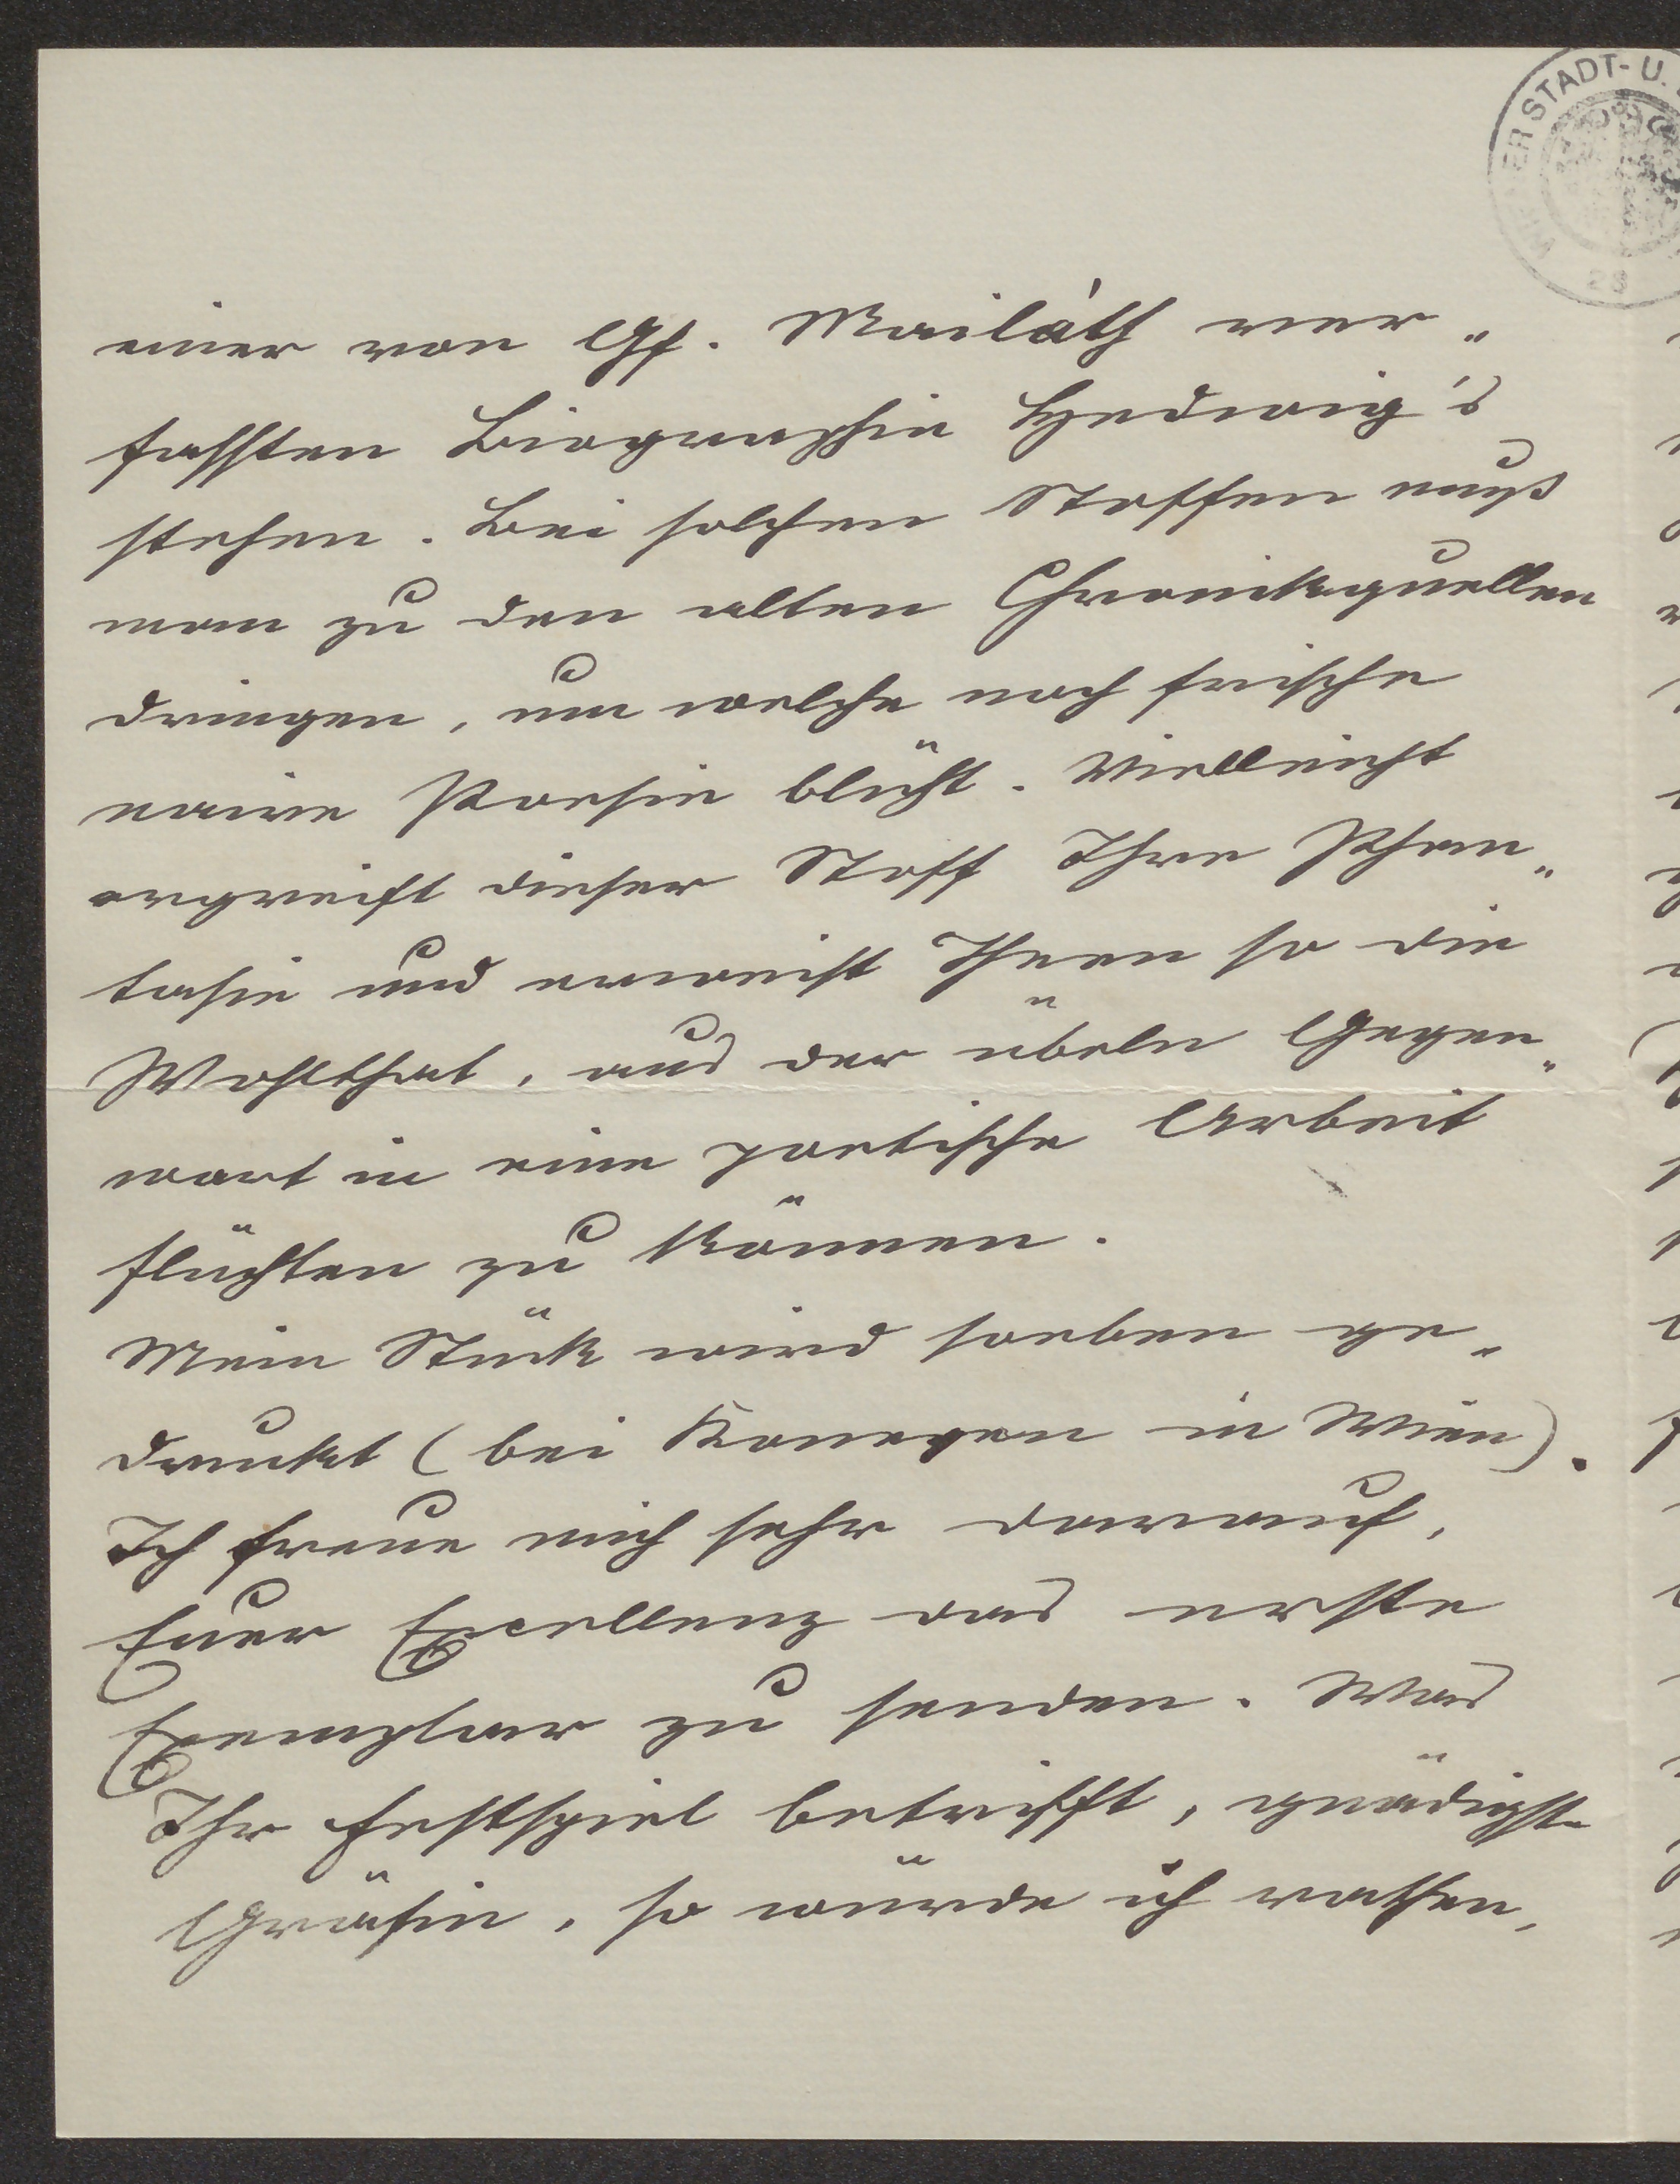 WIENER STADT- U.
28
einer von Gf. Mailáth ver„
fassten Biographie Hedwig's
stehen. Bei solchen Stoffen muß
man zu den alten Chronikquellen
dringen, um welche noch frische
naive Poesie blüht. Vielleicht
ergreift dieser Stoff Ihre Phan„
tasie und erweist Ihnen so die
Wohlthat, aus der übeln Gegen„
wart in eine poetische Arbeit
flüchten zu können.
Mein Stück wird soeben ge„
druckt (bei Konegen in Wien).
Ich freue mich sehr darauf,
Euer Excellenz das erste
Exemplar zu senden. Was
Ihr Festspiel betrifft, gnädigste
Gräfin, so würde ich rathen,